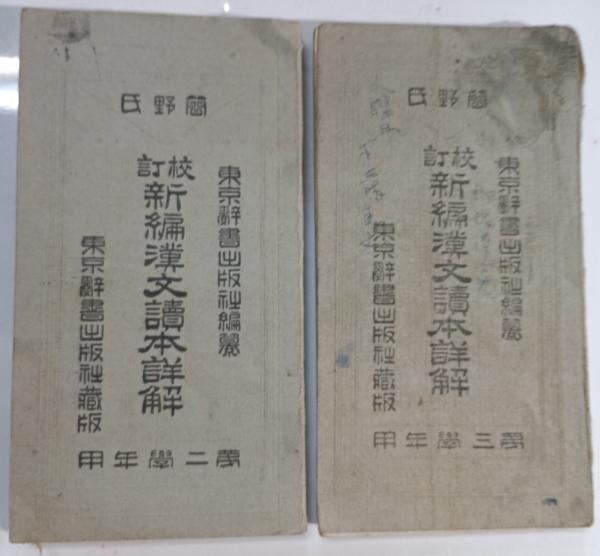 簡野氏
東京辭書出版社編纂
校訂
新編漢文讀本詳解
東京辭書出版社藏版
第二學年用
簡野氏
東京辭書出版社編纂
校訂
新編漢文讀本詳解
東京辭書出版社藏版
第三學年用